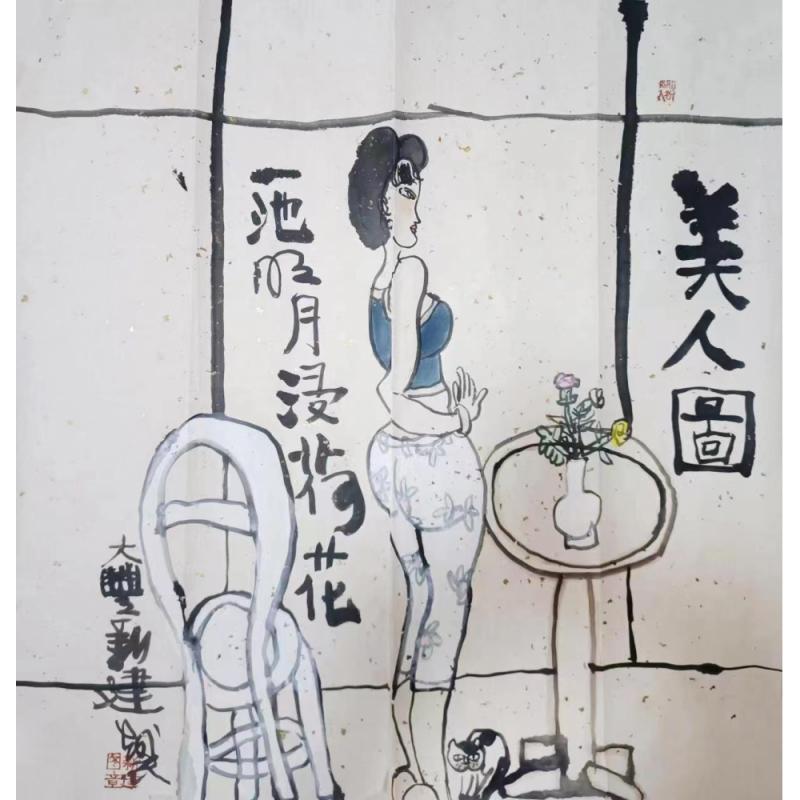 美人圖
一池明月浸荷花
大豐新建